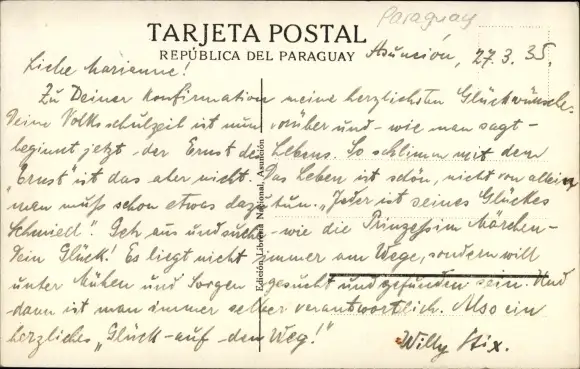 Paraguay
TARJETA POSTAL
REPÚBLICA DEL PARAGUAY
Asunción, 27.3.35.
Liebe Marianne!
Zu Deiner Konfirmation meine herzlichsten Glückwünsche.
Deine Volksschulzeit ist nun vorüber und - wie man sagt -
beginnt jetzt der Ernst des Lebens. So schlimm mit dem
"Ernst" ist das aber nicht. Das Leben ist schön, nicht von allein,
man muß schon etwas dazu tun. "Jeder ist seines Glückes
Schmied." Geh aus und suche - wie die Prinzessin im Märchen -
Dein Glück! Es liegt nicht immer am Wege, sondern will
unter Mühen und Sorgen gesucht und gefunden sein. Und
dann ist man immer selber verantwortlich. Also ein
herzliches "Glück - auf - den Weg!"
Willy Stix.
Edición Librería Nacional, Asunción